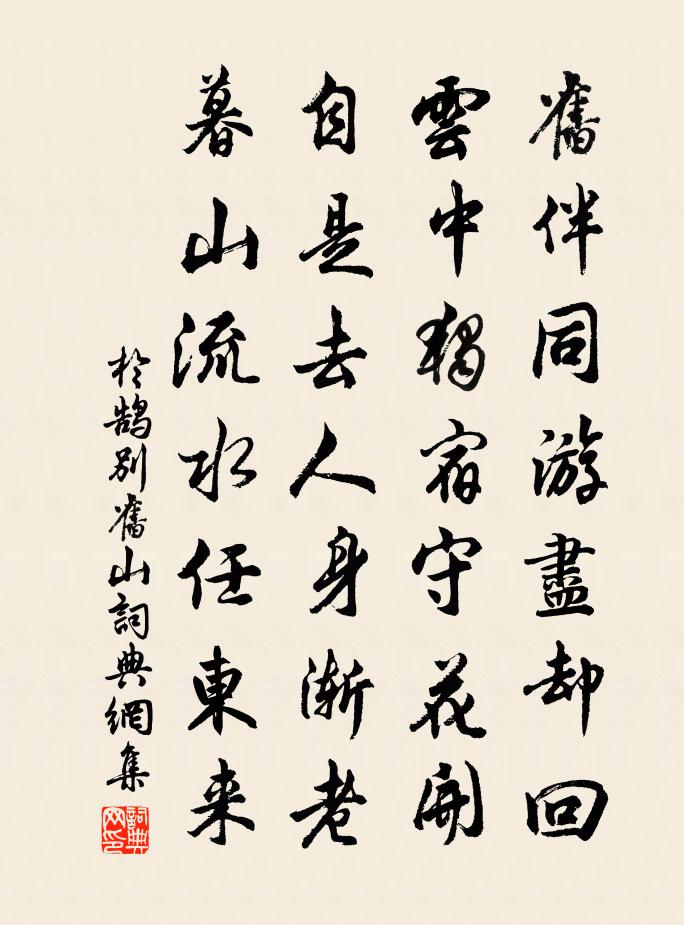 舊伴同游盡却回
雲中獨宿守花開
自是去人身漸老
暮山流水任東来
於鵠別舊山詞典網集
詞典网印